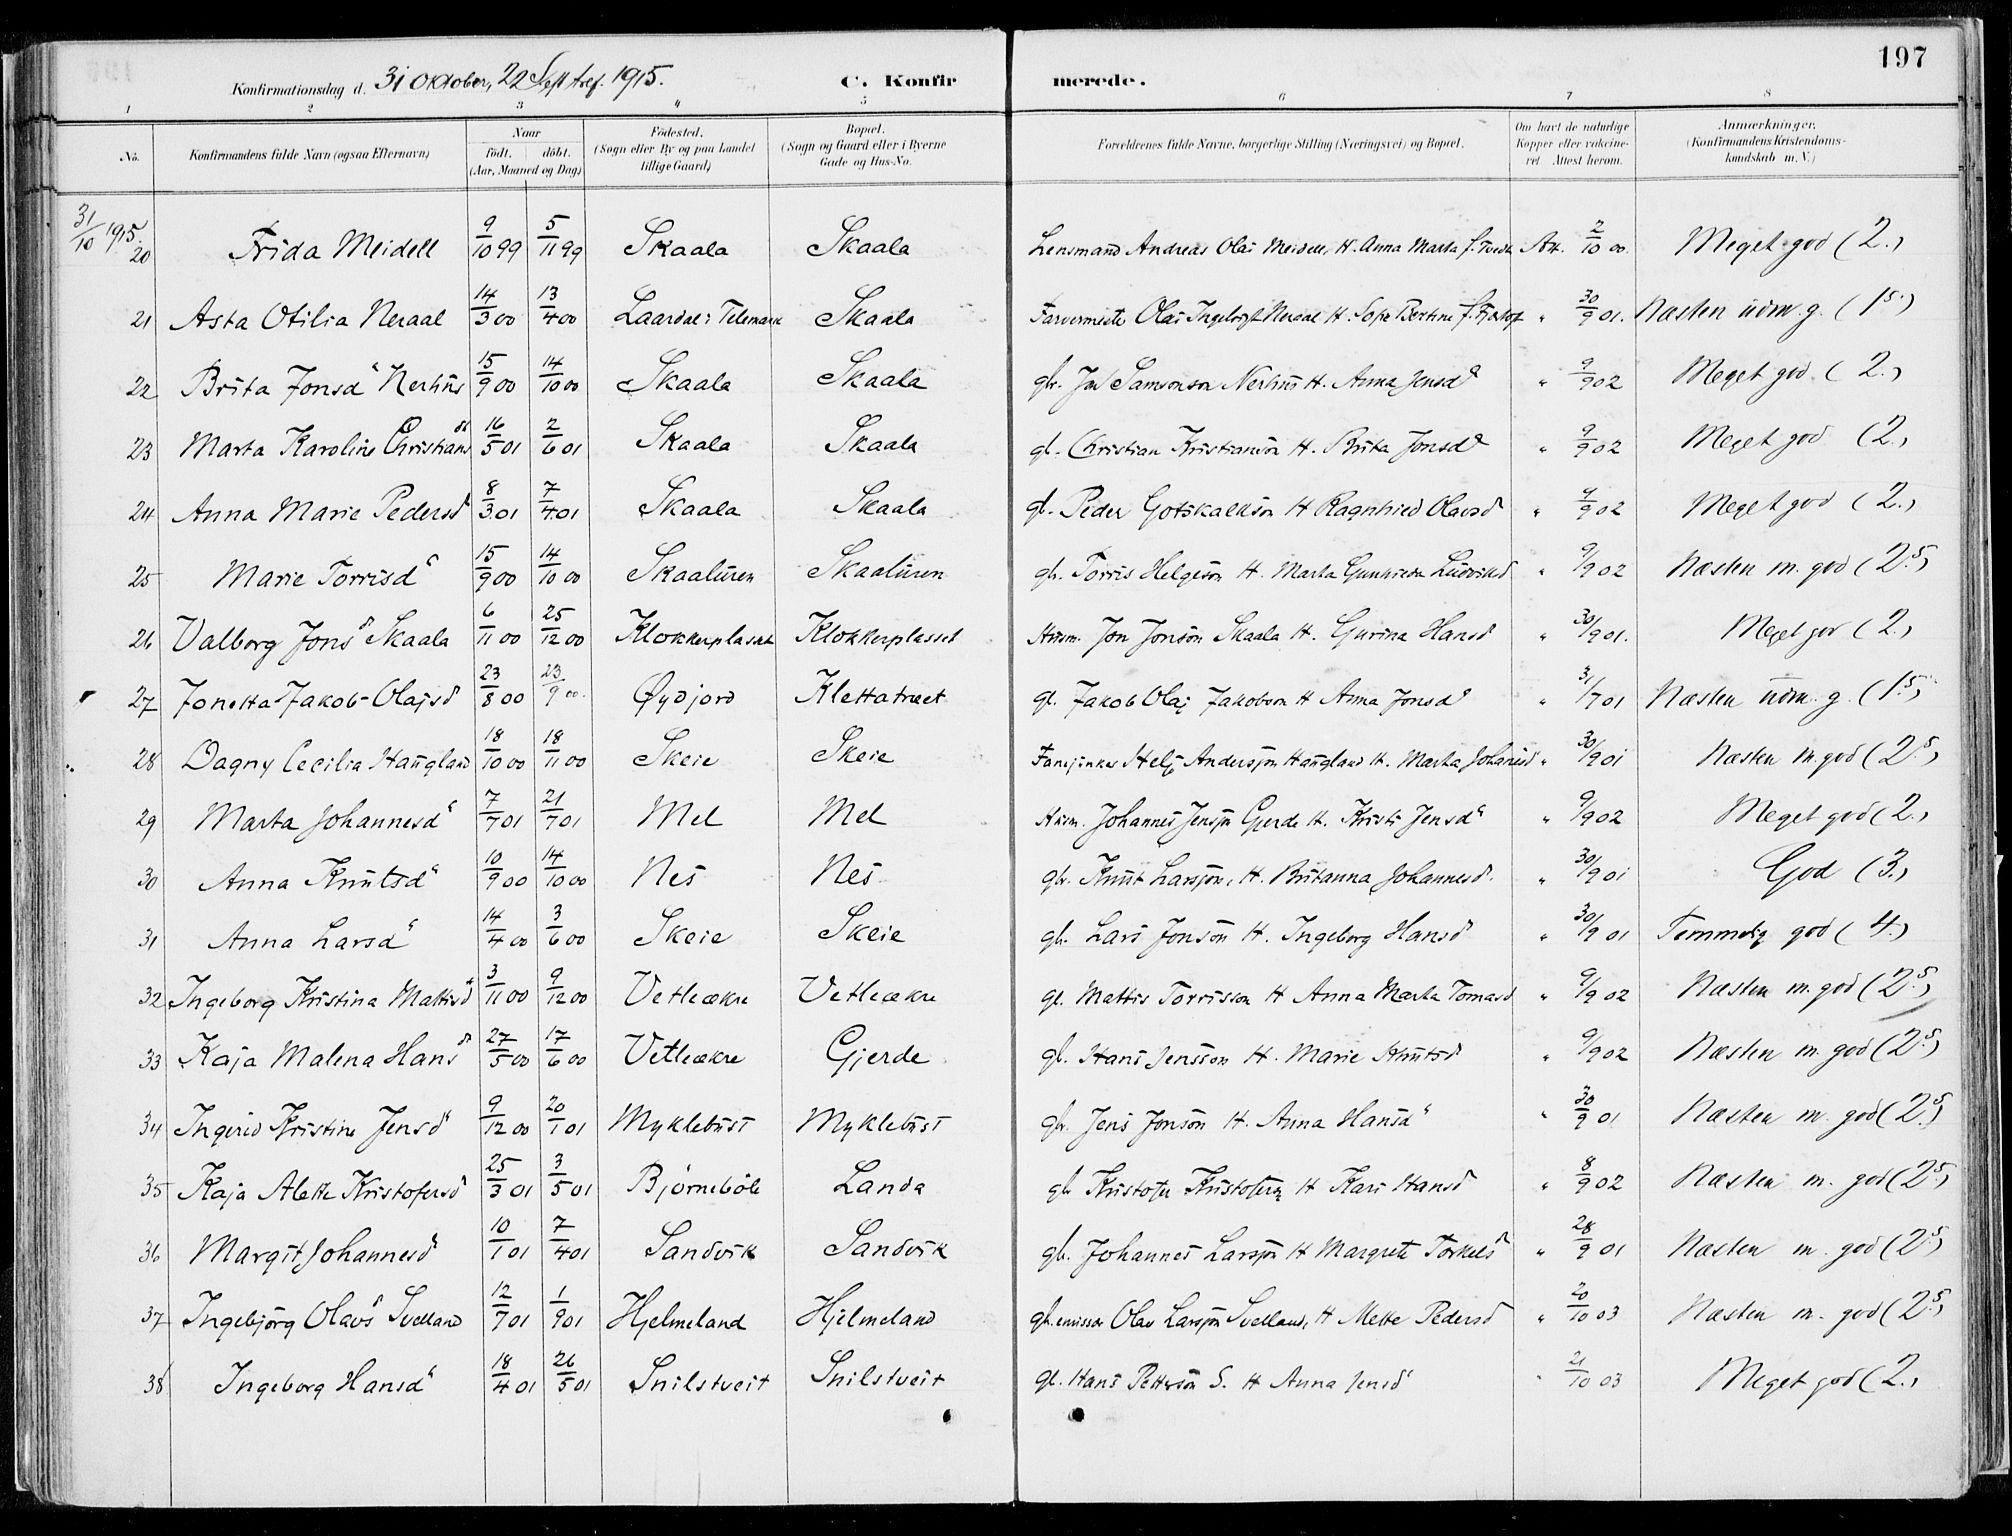 197
Konfirmationsdag d. 31 Oktober, 22 S. eft Tref. 1915. C. Konfirmerede.
1 2 3 4 5 6 7 8
No. Konfirmandens fulde Navn (ogsaa Efternavn) Naar födt. döbt. (Aar, Maaned og Dag) Födested. (Sogn eller By og paa Landet tillige Gaard) Bopæl. (Sogn og Gaard eller i Byerne Gade og Hus-No. Forældrenes fulde Navne, borgerlige Stilling (Næringsvei) og Bopæl. Om havt de naturlige Kopper eller vakcineret Attest herom. Anmærkninger. (Konfirmandens Kristendomskundskab m. V.)
31/10 1915.
20 Frida Meidell 9/10 99 5/11 99 Skaala Skaala Lensmand Andreas Olai Meidell, H. Anna Marta f. Tvedt Att. 2/10 00. Meget god (2.)
21 Asta Otilia Neraal 14/3 00 13/4 00 Laardal i Telemark Skaala Olai Ingebrigt Neraal H. Sofie Bertine f. " 30/9 01. Næsten udm. g. (1.5)
22 Brita Jonsd Nerhus 15/9 00 14/10 00 Skaala Skaala gbr. Jon Samsonson Nerhus H. Anna Jensd " 9/9 02 Meget god. (2.)
23 Marta Karoline Christiansd 16/5 01 2/6 01 Skaala Skaala gb. Christian Kristianson H. Brita Jonsd " 9/9 02 Meget god (2.)
24 Anna Marie Pedersd 8/3 01 7/4 01 Skaala Skaala gb. Peder Gotskalkson H Ragnhild Olavsd " 9/9 02 Meget god (2.)
25 Marie Torrisd 15/9 00 14/10 00 Skaaluren Skaaluren gbr. Torris Helgeson H. Marta Gunhilda Ludvikd " 9/9 02 Næsten m. god (2.5)
26 Valborg Jonsd Skaala 6/11 00 25/12 00 Klokkerplasset Klokkerplasset Husm. Jon Jonson Skaala H. Gurina Hansd " 30/9 01. Meget god (2.)
27 Jonetta Jakob-Olajsd 23/8 00 23/9 00. Øydjord Klettatræet gb. Jakob Olaj Jakobson H Anna Jonsd " 31/7 01 Næsten udm. g. (1.5)
28 Dagny Cecilia Haugland 18/10 00 18/11 00 Skeie Skeie Fanejunker Helje Andersson Haugland H. Marta Johannesd " 30/9 01 Næsten m. god (2.5)
29 Marta Johannesd 7/7 01 21/7 01 Mel Mel Husm. Johannes Jensson Gjerde H. Kristi Jensd " 9/9 02 Meget god (2.)
30 Anna Knutsd 10/9 00 14/10 00 Nes Nes gbr. Knut Larsson, H. Britanna Johannesd. " 30/9 01 God (3.)
31 Anna Larsd 14/4 00 3/6 00 Skeie Skeie gb. Lars Jonson H. Ingeborg Hansd " 30/9 01 Temmelig god (4.)
32 Ingeborg Kristina Mattisd 3/11 00 9/12 00 Vetleøkre Vetleøkre gb. Mattis Torrisson H Anna Marta Tomasd " 9/9 02 Næsten m. god (2.5)
33 Kaja Malena Hansd 27/5 00 17/6 00 Vetleøkre Gjerde gb. Hans Jensson H. Marie Knutsd " 9/9 02 Næsten m. god (2.5)
34 Ingerid Kristine Jensd 9/12 00 20/1 01 Myklebust Myklebust gbr. Jens Jonson H. Anna Hansd " 30/9 01 Næsten m. god (2.5)
35 Kaja Alette Kristofersd 25/3 01 3/5 01 Bjørnebøle Landa gbr Kristofer Kristoferson H Kari Hansd " 8/9 02 Næsten m. god (2.5)
36 Margit Johannesd 10/1 01 7/4 01 Sandvik Sandvik gb. Johannes Larsson H Margrete Torkelsd " 28/9 01 Næsten m. god (2.5)
37 Ingebjørg Olavsd Svelland 12/7 01 1/9 01 Hjelmeland Hjelmeland gb. emissær Olav Larsson Svelland, H Mette Pedersd " 20/10 03 Næsten m. god (2.5)
38 Ingeborg Hansd 18/4 01 26/5 01 Snilstveit Snilstveit gb. Hans Petterson S. H Anna Jensd " 21/10 03 Meget god (2.)